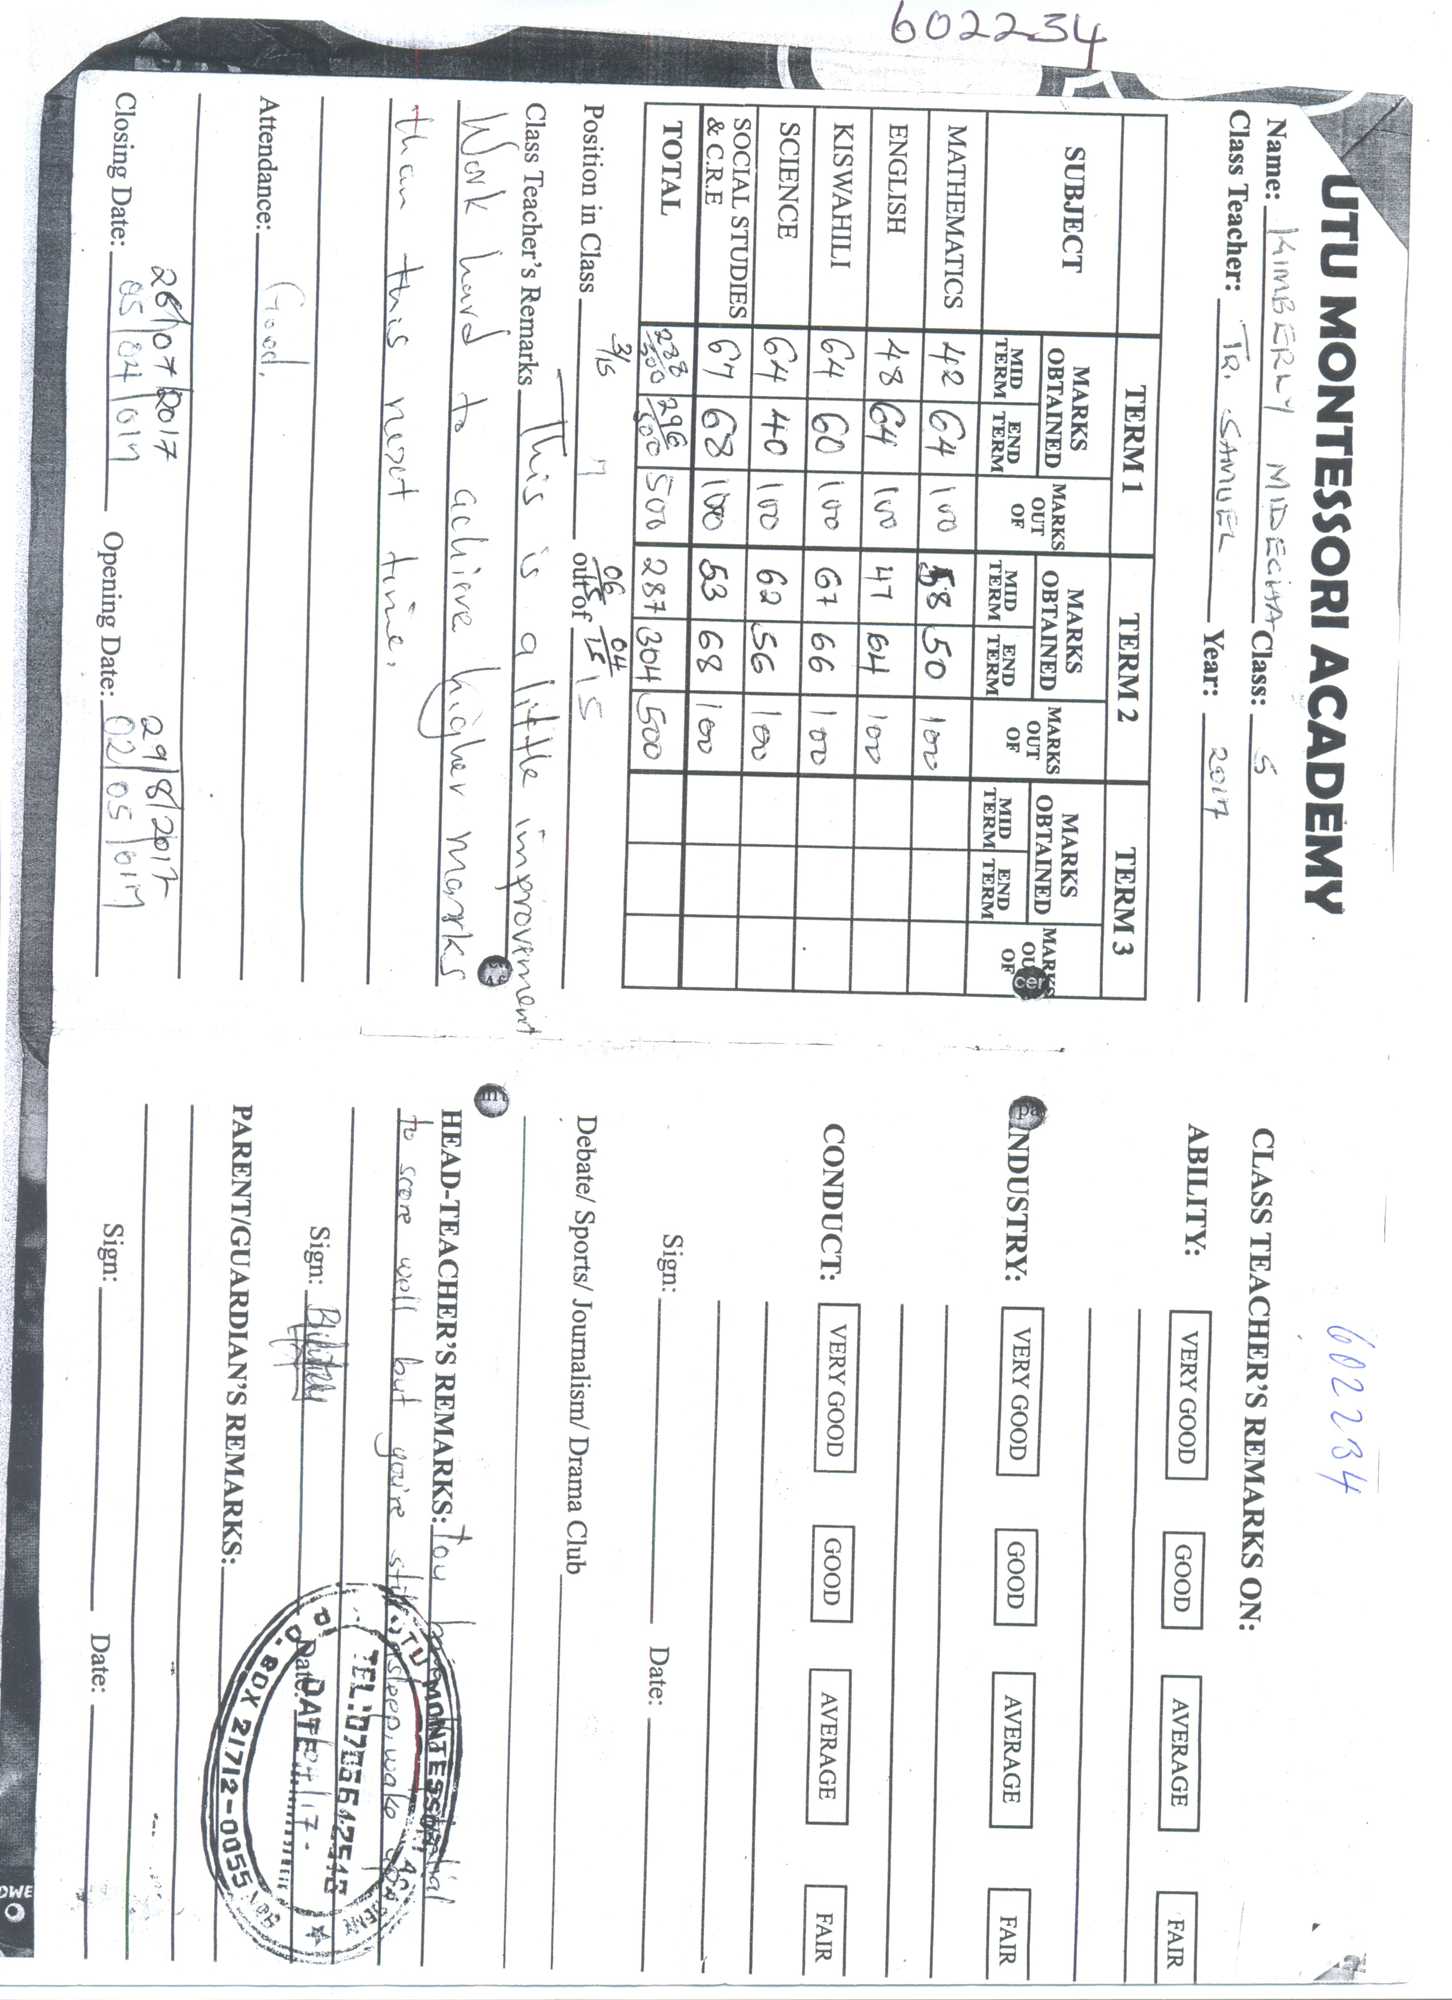 602234
UTU MONTESSORI ACADEMY
Name: KIMBERLY MIDECHA Class: 5
Class Teacher: TR. SAMUEL Year: 2017
SUBJECT TERM 1 TERM 2 TERM 3
MARKS OBTAINED MARKS OUT OF MARKS OBTAINED MARKS OUT OF MARKS OBTAINED MARKS OUT OF
MID TERM END TERM MID TERM END TERM MID TERM END TERM
MATHEMATICS 42 64 100 58 50 100
ENGLISH 48 64 100 47 64 100
KISWAHILI 64 60 100 67 66 100
SCIENCE 64 40 100 62 56 100
SOCIAL STUDIES & C.R.E 67 68 100 53 68 100
TOTAL 288/500 296/500 500 287 304 500
3/15 06/15 04/15
Position in Class 7 out of 15
Class Teacher's Remarks This is a little improvement
Work hard to achieve higher marks
than this next time.
Attendance: Good.
26/07/2017 29/8/2017
Closing Date: 05/04/017 Opening Date: 02/05/017
602234
CLASS TEACHER'S REMARKS ON:
ABILITY: VERY GOOD GOOD AVERAGE FAIR
INDUSTRY: VERY GOOD GOOD AVERAGE FAIR
CONDUCT: VERY GOOD GOOD AVERAGE FAIR
Sign: Date:
Debate/ Sports/ Journalism/ Drama Club
HEAD-TEACHER'S REMARKS: You
to score well but you're still asleep, wake up
Sign: Date:
UTU MONTESSORI
TEL:0706642540
DATE
BOX 21712-0055
PARENT/GUARDIAN'S REMARKS:
Sign: Date: